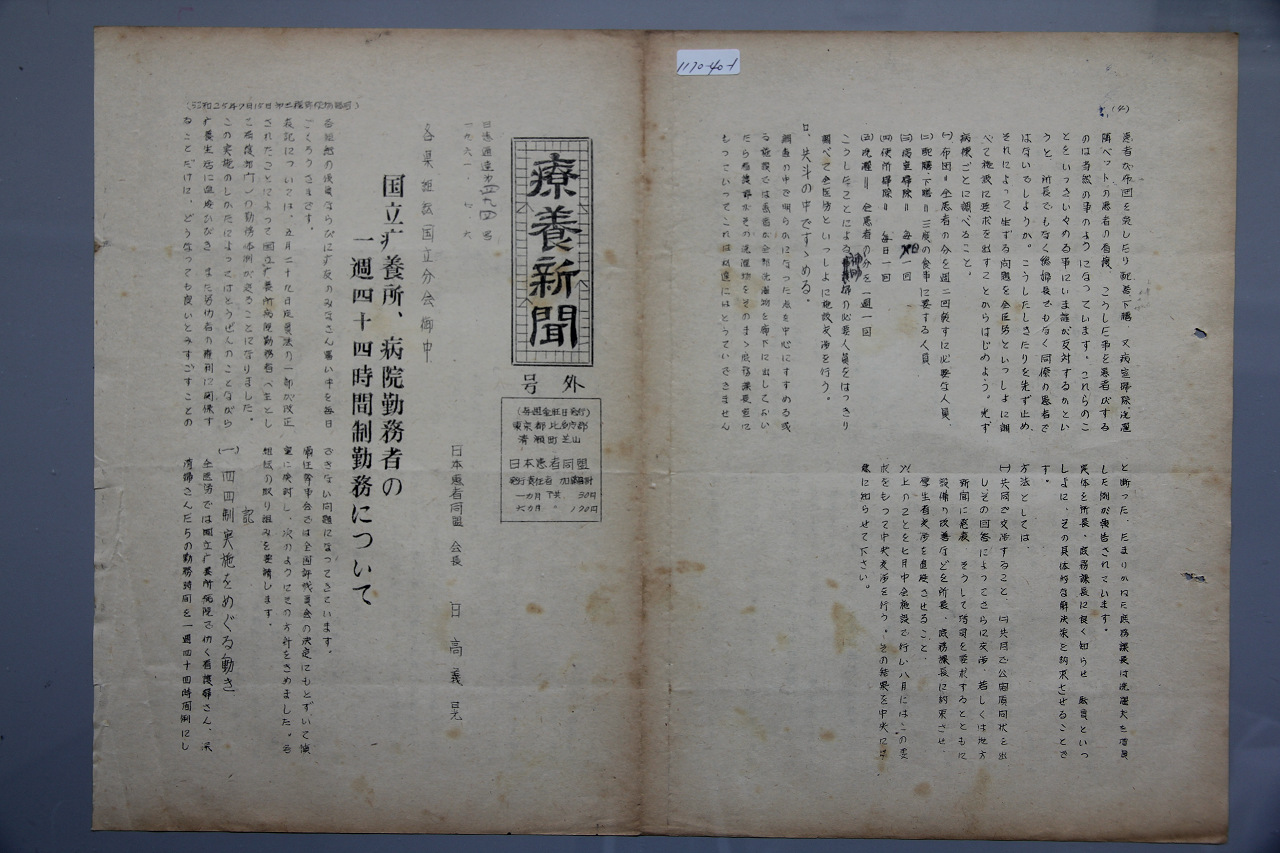 1170-40-1
(昭和25年9月15日第三種郵便物認可)
療養新聞
号外
(毎週金曜日発行)
東京都北多摩郡
清瀬町芝山
日本患者同盟
発行責任者 加藤
一カ月 下共 30円
六カ月 〃 170円
日患通達第四九四号
一九六一、七、六
各県組織国立分会御中
日本患者同盟 会長 日高義晃
国立疗養所、病院勤務者の
一週四十四時間制勤務について
各組織の役員ならびに会員のみなさん暑い中を毎日
ごくろうさまです。
表記については、五月二十九日定員法の一部が改正
されたことによって国立疗養所病院勤務者(主とし
て看護部門)の勤務体制が変ることになりました。
この実施のしかたによってはとうぜんのことながら
疗養生活に直接ひびき、また労仂者の権利に関係す
ることだけに、どうなっても良いとみすごすことの
できない問題になってきています。
常任幹事会では全国評議員会の決定にもとずいて慎
重に検討し、次のようにその方針をきめました。各
組織の取り組みを要請します。
記
(一) 四四制実施をめぐる動き
全医労では国立疗養所病院で仂く看護婦さん、采
清婦さんたちの勤務時間を一週四十四時間制にし
(4)
患者が布団を発したり配膳下膳、又病室掃除、洗濯
隣ベットの患者の看護、こうした事を患者がする
のは当然の事のようになっています。これらのこ
とをいっさいやめる事にいま誰が反対するかとい
うと、所長でもなく総婦長でもなく同僚の患者で
はないでしょうか。こうしたしきたりを先ず止め
それによって生ずる問題を全医労といっしょに調
べて施設に要求を出すことからはじめよう。先ず
病棟ごとに調べること。
(一)布団=全患者の分を週二回発すに必要な人員、
(二)配膳下膳=三度の食事に要する人員
(三)病室掃除=毎日一回
(四)便所掃除=毎日一回
(五)洗濯=全患者の分を一週一回
こうしたことによる補助婦の必要人員をはっきり
調べて全医労といっしょに施設交渉を行う。
ロ、共斗の中ですゝめる。
調査の中で明らかになった点を中心にすすめる或
る施設では患者が全部洗濯物を廊下に出しておい
たら看護婦がその洗濯物をそのまゝ庶務課長室に
もっていってこれは私達にはとってもできません
と断った、たまりかねた庶務課長は洗濯夫を増員
した例が報告されています。
実体を所長、庶務課長に良く知らせ、職員といっ
しょに、その具体的な解決策を約束させることで
す。
方法としては、
(一)共同で交渉すること、(二)共同で公開質問状を出
しその回答によってさらに交渉、若しくは地方
新聞に意表、そうして増員を要求するとともに
設備の改善などを所長、庶務課長に約束させ、
厚生省交渉を直接させること、
以上のことを七月中全施設で行い八月にはこの要
求をもって中央交渉を行う。その結果を中央に早
急に知らせて下さい。